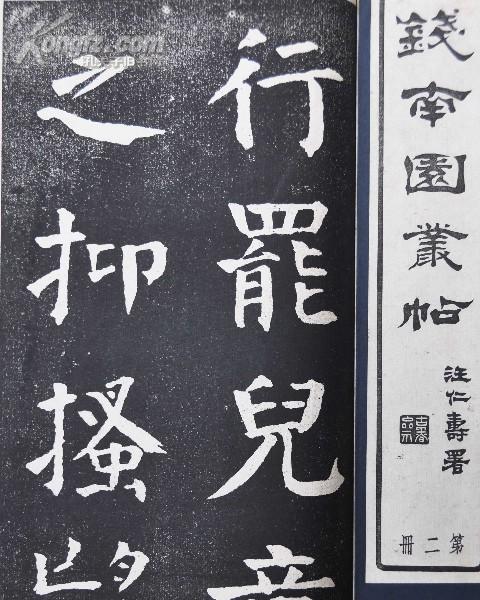 錢南園叢帖
汪仁壽署
第二冊
行罷兒
之抑搔
Kongfz.com
孔夫子旧书网